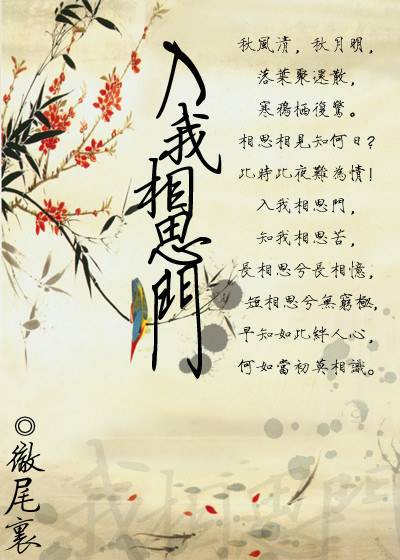 入我相思門
秋風清，秋月明，
落葉聚還散，
寒鴉栖復驚。
相思相見知何日？
此時此夜難為情！
入我相思門，
知我相思苦，
長相思兮長相憶，
短相思兮無窮極，
早知如此絆人心，
何如當初莫相識。
◎徹尾裏
我相思門